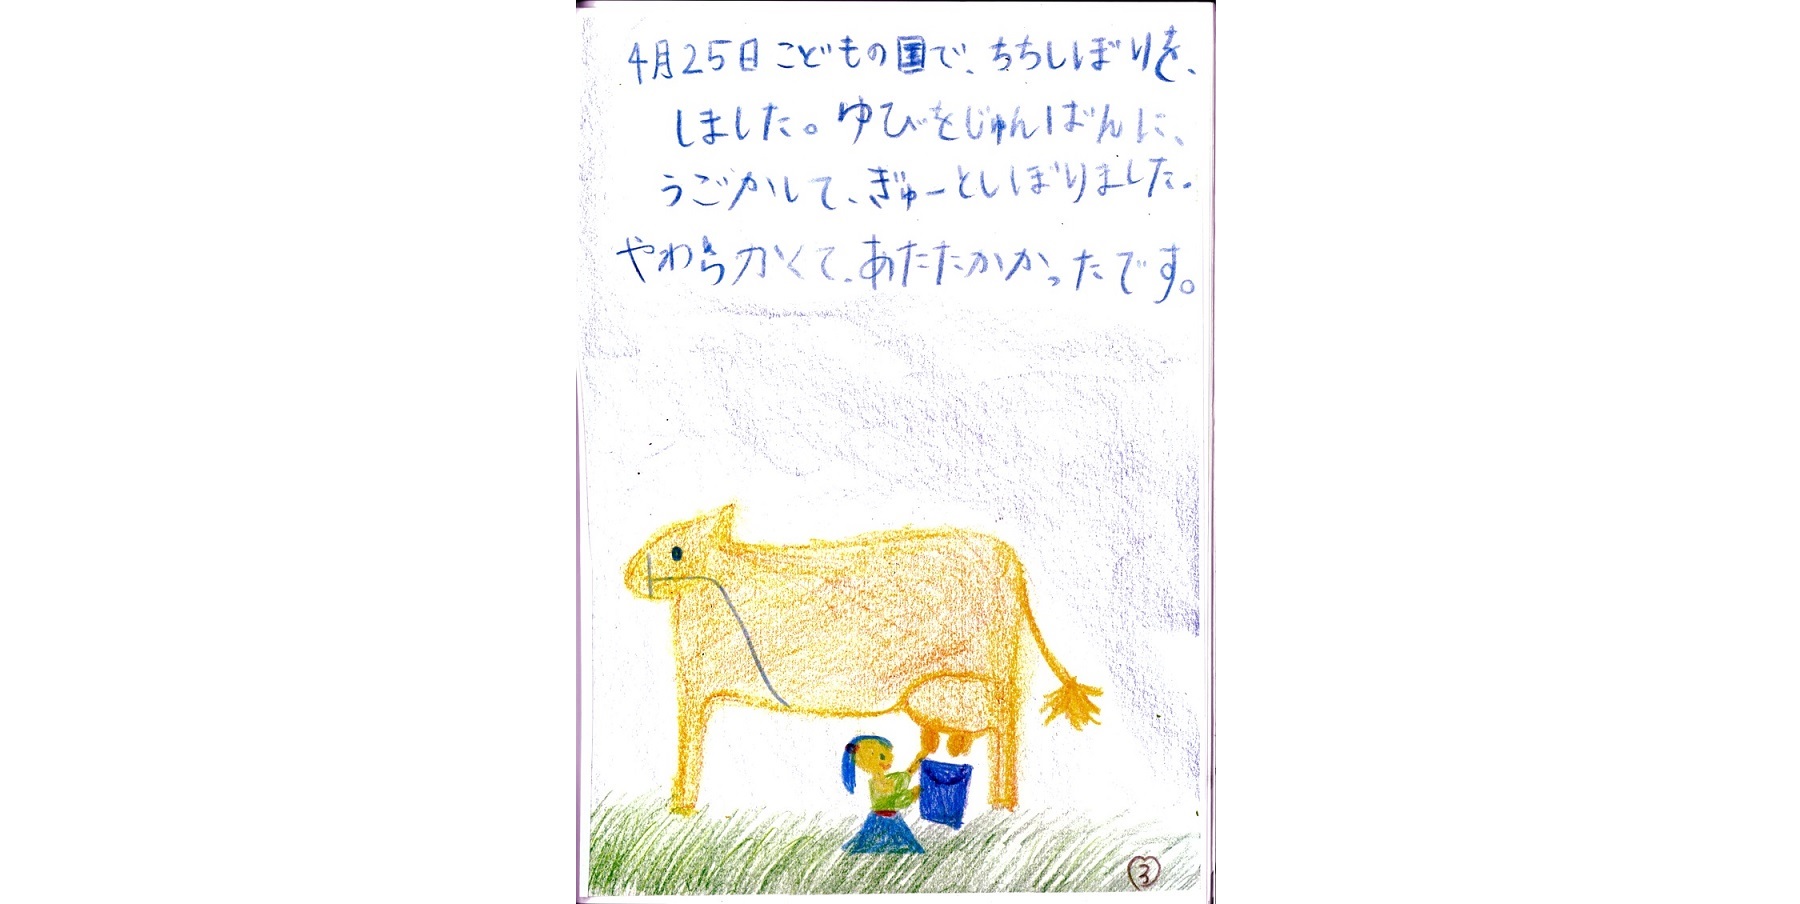 4月25日こどもの国で、ちちしぼりを、
しました。ゆびをじゅんばんに、
うごかして、ぎゅーとしぼりました。
やわらかくて、あたたかかったです。
3